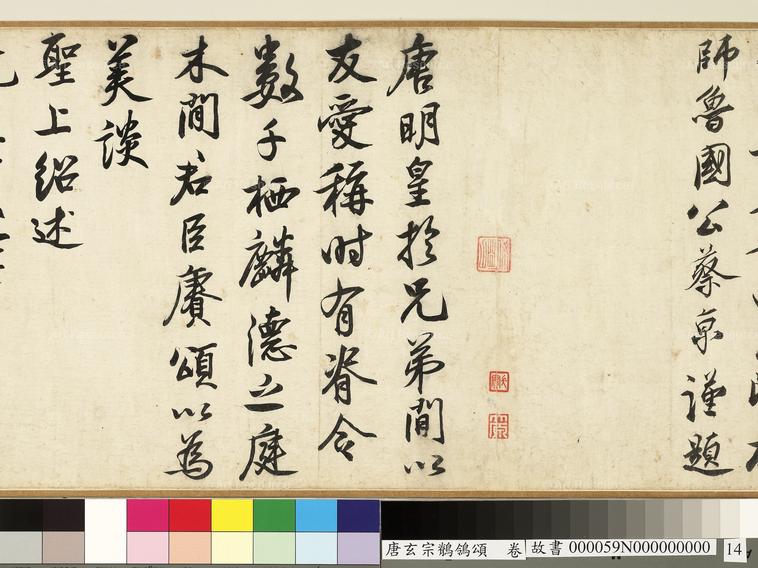 師魯國公蔡京謹題
唐明皇於兄弟間以
友愛稱時有脊令
數千栖麟德之庭
木間君臣賡頌以為
美談
聖上紹述
唐玄宗鶺鴒頌 卷 故書 000059N000000000 14